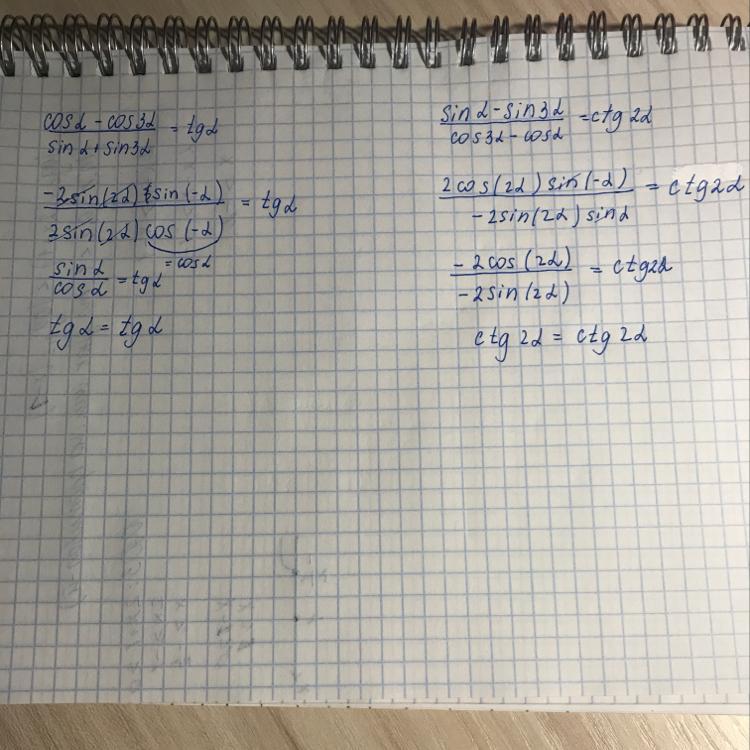 (cosα - cos3α)/(sinα + sin3α) = tgα
(-2sin(2α) sin(-α))/(2sin(2α) cos(-α)) = tgα
= cosα
sinα/cosα = tgα
tgα = tgα
(sinα - sin3α)/(cos3α - cosα) = ctg2α
(2cos(2α) sin(-α))/(-2sin(2α) sinα) = ctg2α
(-2cos(2α))/(-2sin(2α)) = ctg2α
ctg2α = ctg2α